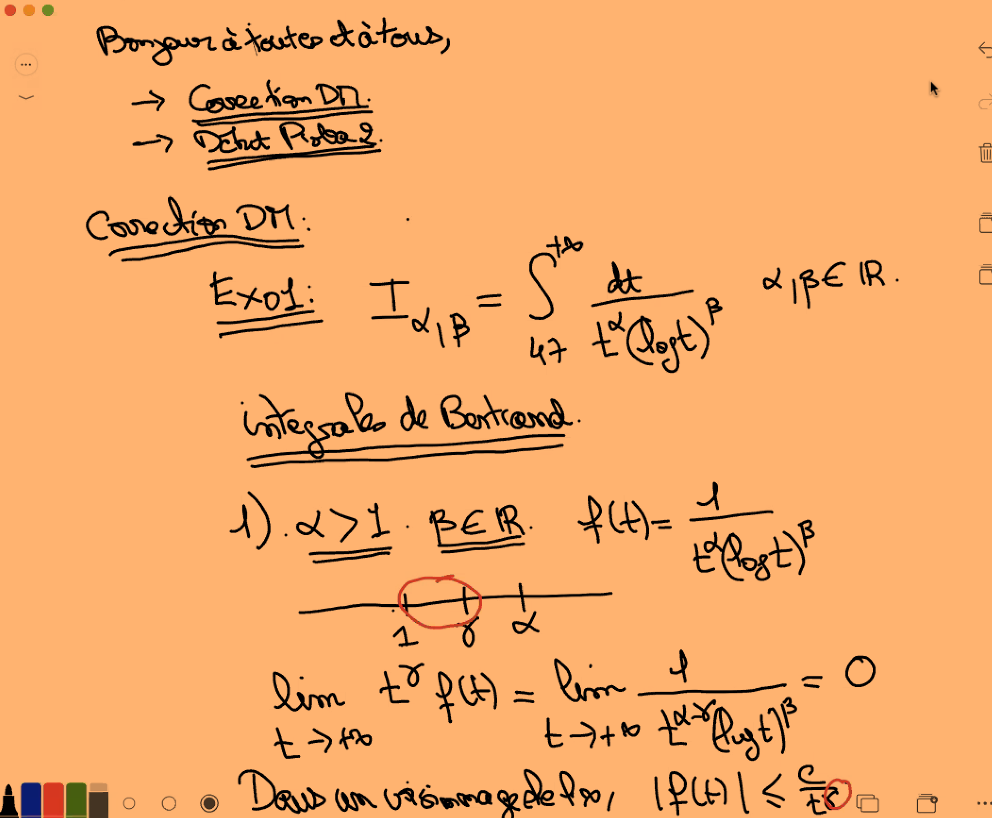 Bonjour à toutes et à tous,
→ Correction DM.
→ Début Proba 2.
Correction DM:
Exo1: I_{α,β} = ∫_{47}^{+∞} dt / (t^α (log t)^β) α,β ∈ ℝ.
intégrales de Bertrand.
1). α > 1. β ∈ ℝ. f(t) = 1 / (t^α (log t)^β)
1 γ α
lim_{t→+∞} t^γ f(t) = lim_{t→+∞} 1 / (t^{α-γ} (log t)^β) = 0
Dans un voisinage de +∞, |f(t)| ≤ c / t^γ